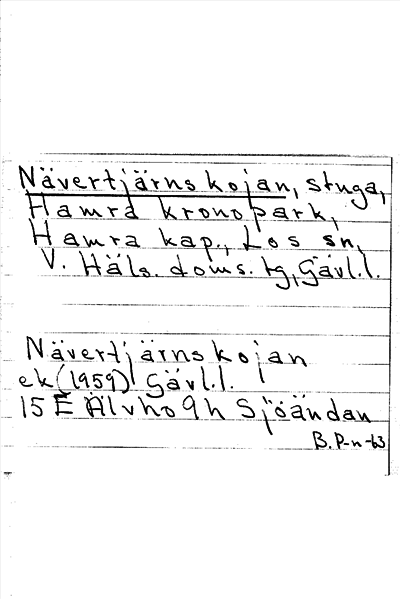 Nävertjärnskojan, stuga,
Hamra kronopark,
Hamra kap., Los sn,
V. Häls. doms. tg, Gävl.l.
Nävertjärnskojan
ek (1959) Gävl.l.
15 E Älvho 9h Sjöändan
B. P-n -63